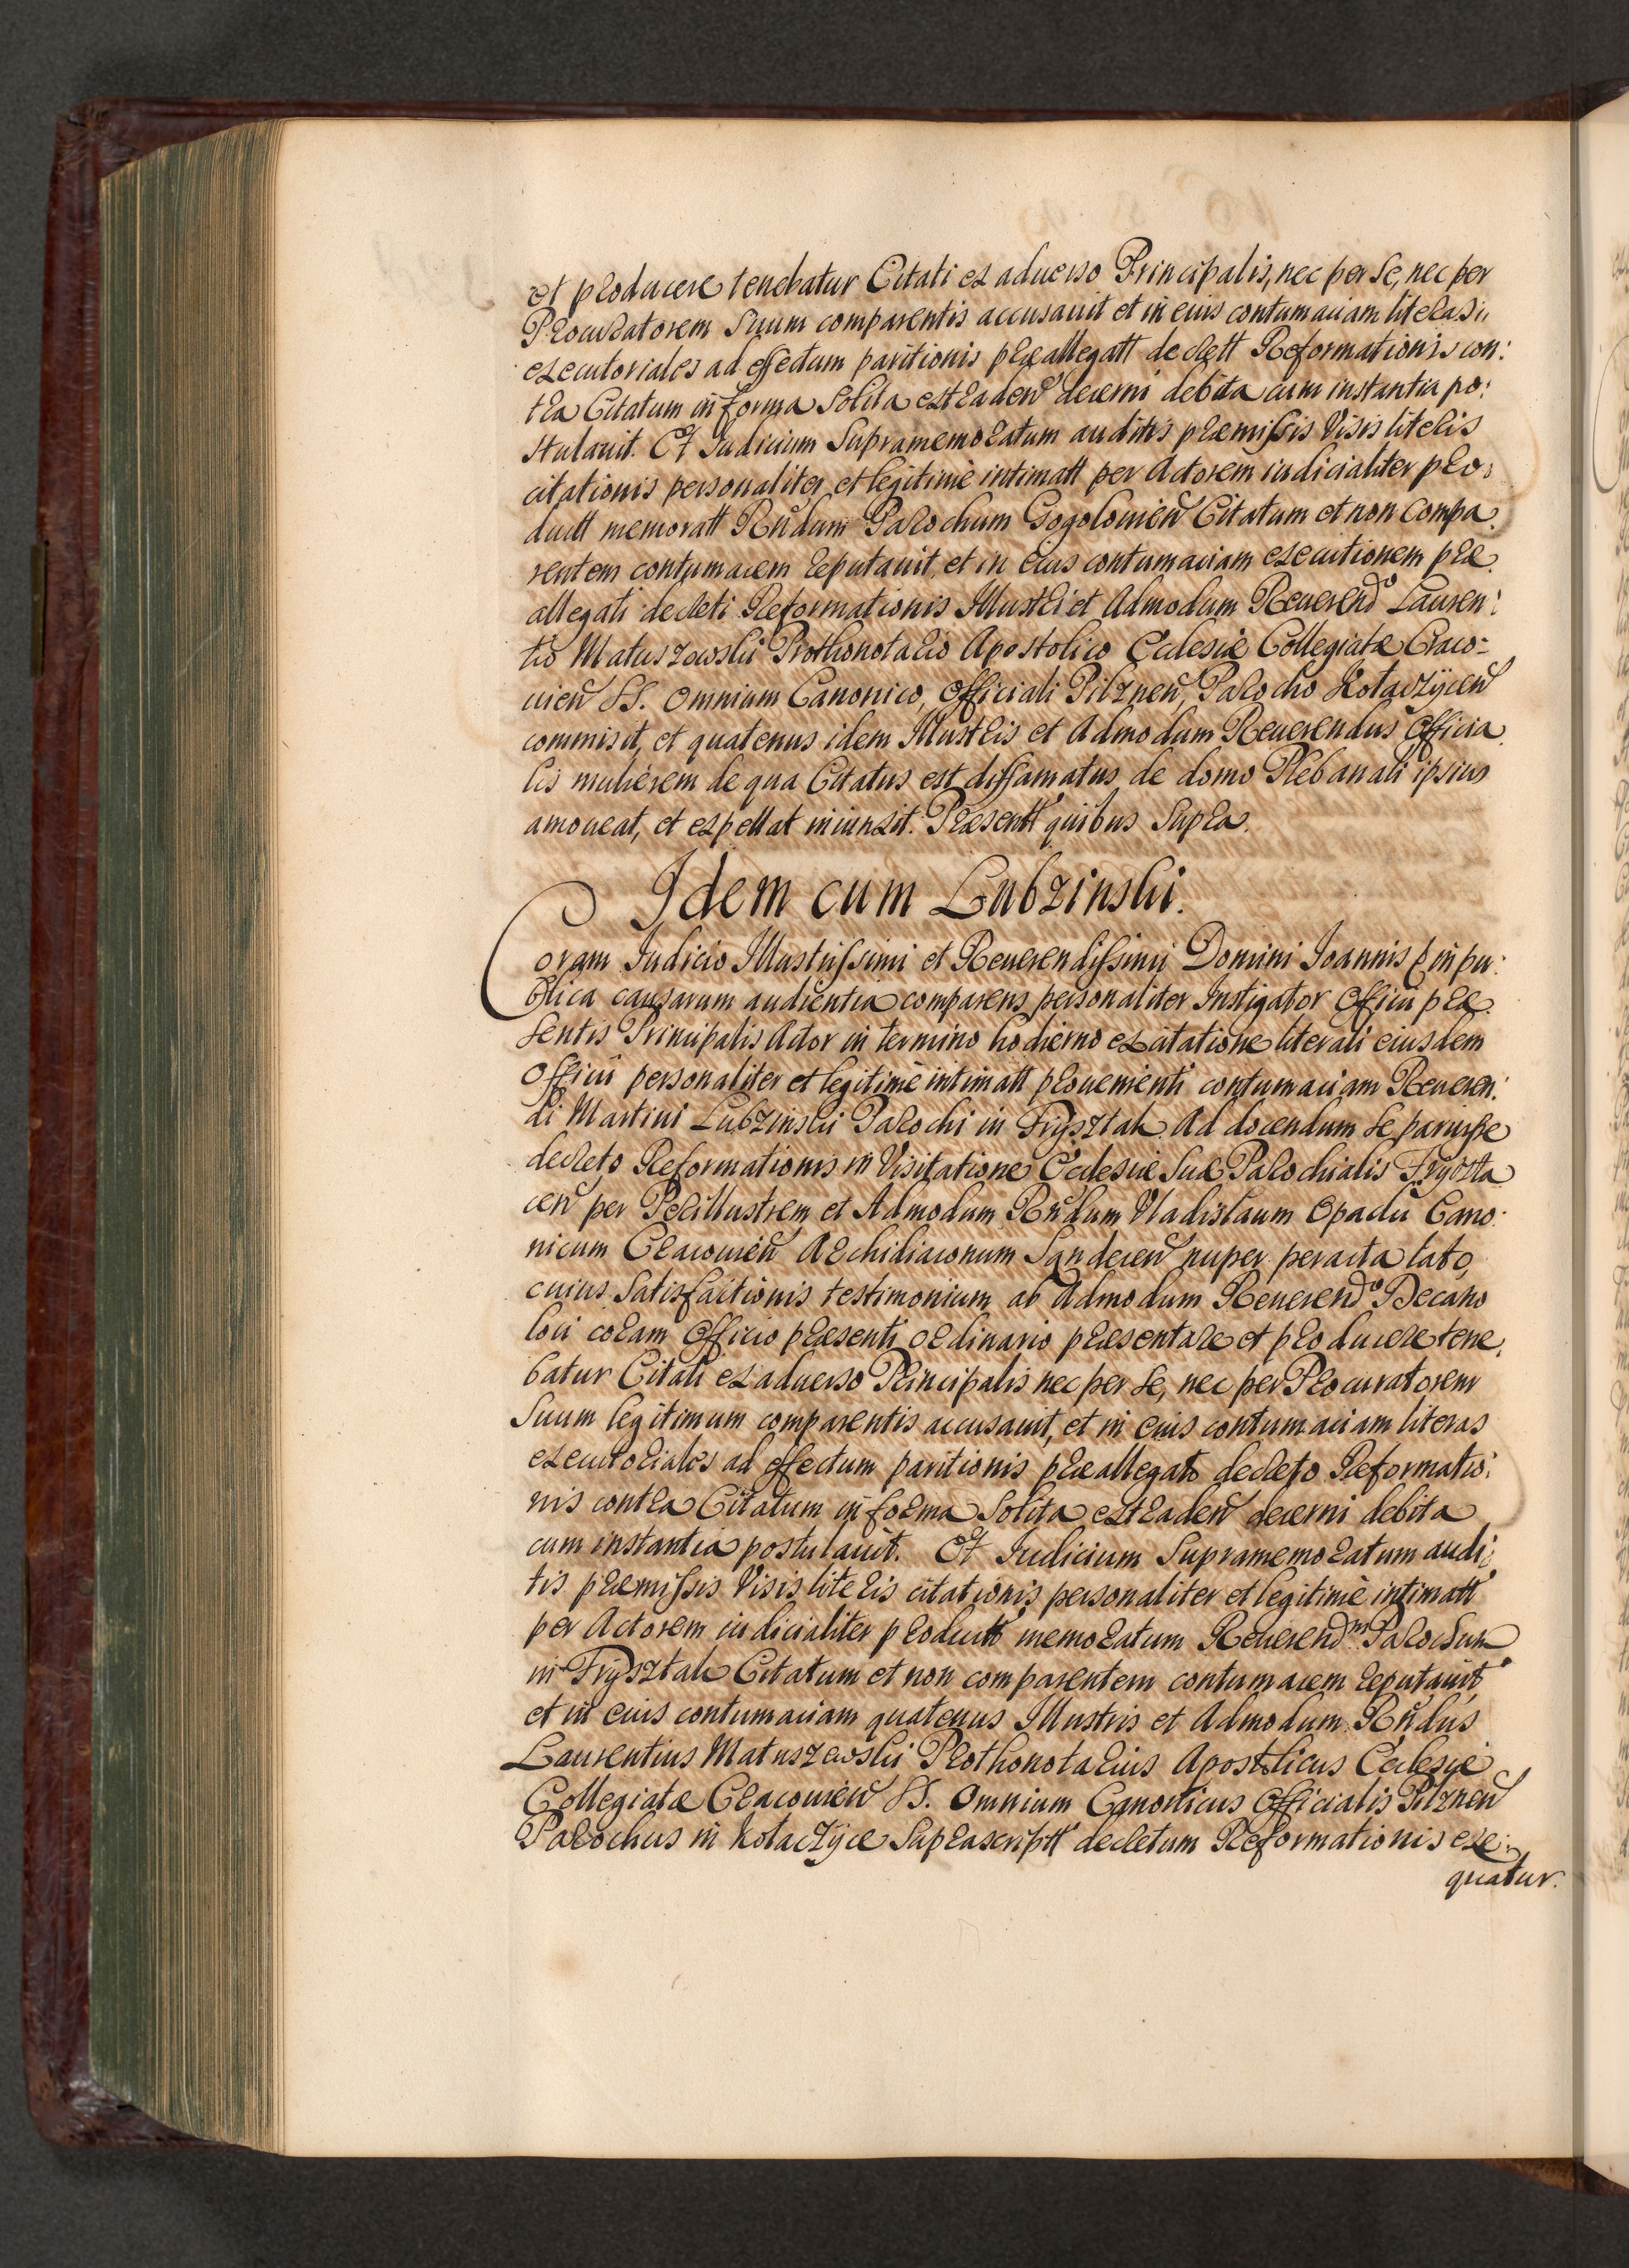 et producere tenebatur Citati ex aduerso Principalis, nec per se, nec per
Procuratorem suum comparentis accusauit et in eius contumaciam literas
executoriales ad effectum paritionis praeallegatt decrett Reformationis con:
tra Citatum in forma solita extraden decerni debita cum instantia po:
stulauit. Et Iudicium supramemoratum auditis praemissis visis literis
citationis personaliter et legitimè intimatt per Actorem iudicialiter pro:
ductt memoratt Rndum Parochum Gogolouien Citatum et non compa:
rentem contumacem reputauit, et in eius contumaciam executionem prae:
allegati decreti Reformationis Illustri et Admodum Reuerendo Lauren:
tio Matuszewski Prothonotario Apostolico Ecclesiae Collegiatae Craco:
uien SS. Omnium Canonico, Officiali Pilznen, Parocho Kołaczÿcen
commisit, et quatenus idem Illustris et Admodum Reuerendus Officia:
lis mulierem de qua Citatus est diffamatus de domo Plebanali ipsius
amoueat, et expellat iniunxit. Praesentt quibus supra.
Idem cum Lubzinski.
Coram Iudicio Illustrissimi et Reuerendissimi Domini Ioannis p in pu:
blica causarum audientia comparens personaliter Instigator Officii prae:
sentis Principalis Actor in termino hodierno ex citatione literali eiusdem
Officii personaliter et legitimè intimatt prouenienti contumaciam Reueren:
di Martini Lubzinski Parochi in Frÿsztak. Ad docendum se paruisse
decreto Reformationis in Visitatione Ecclesiae suae Parochialis Frÿszta
cen per Perillustrem et Admodum Rndum Vladislaum Opacki Cano:
nicum Cracouien Archidiaconum Sandecen nuper peracta lato,
cuius satisfactionis testimonium ab Admodum Reuerendo Decano
loci coram Officio praesenti ordinario praesentare et producere tene:
batur Citati ex aduerso Principalis nec per se, nec per Procuratorem
suum legitimum comparentis accusauit, et in eius contumaciam literas
executoriales ad effectum paritionis praeallegato decreto Reformatio:
nis contra Citatum in forma solita extraden decerni debita
cum instantia postulauit. Et Iudicium supramemoratum audi:
tis praemissis visis literis citationis personaliter et legitimè intimatt
per Actorem iudicialiter productt memoratum Reuerendm Parochum
in Frÿsztak Citatum et non comparentem contumacem reputauit,
et in eius contumaciam quatenus Illustris et Admodum Rndus
Laurentius Matuszewski Prothonotarius Apostolicus Ecclesiae
Collegiatae Cracouien SS. Omnium Canonicus Officialis Pilznen
Parochus in Kołaczÿce suprascriptt decretum Reformationis exe:
quatur.